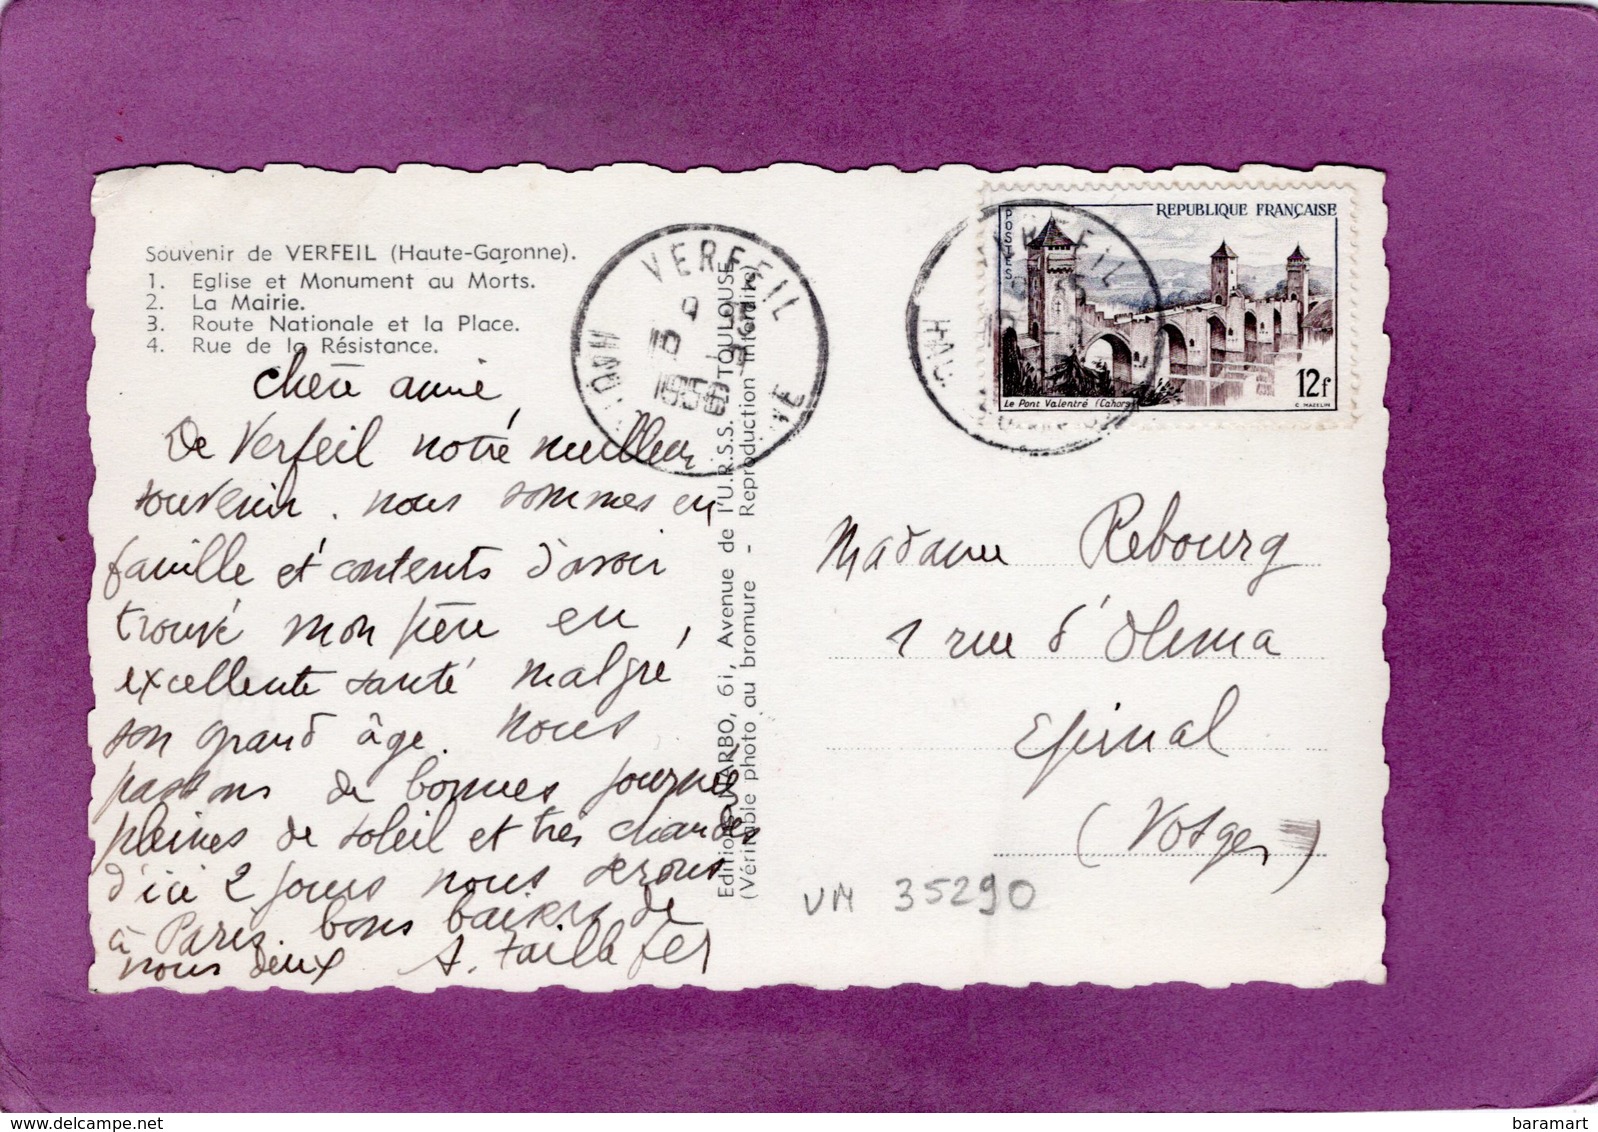 Souvenir de VERFEIL (Haute-Garonne).
1. Eglise et Monument au Morts.
2. La Mairie.
3. Route Nationale et la Place.
4. Rue de la Résistance.
chère amie,
De Verfeil notre meilleur
souvenir. nous sommes en
famille et contents d'avoir
trouvé mon père en
excellente santé malgré
son grand âge. nous
passons de bonnes journées
pleines de soleil et très chaudes
d'ici 2 jours nous serons
à Paris. bons baisers de
nous deux A. Taillafer
VERFEIL
1956
Editions NARBO, 61, Avenue de l'U.R.S.S. TOULOUSE
(Véritable photo au bromure - Reproduction interdite)
VERFEIL
POSTES
REPUBLIQUE FRANÇAISE
12f
Le Pont Valentré (Cahors)
C. MAZELIN
Madame Rebourg
1 rue d'Olima
Epinal
(Vosges)
VM 35290
baramart